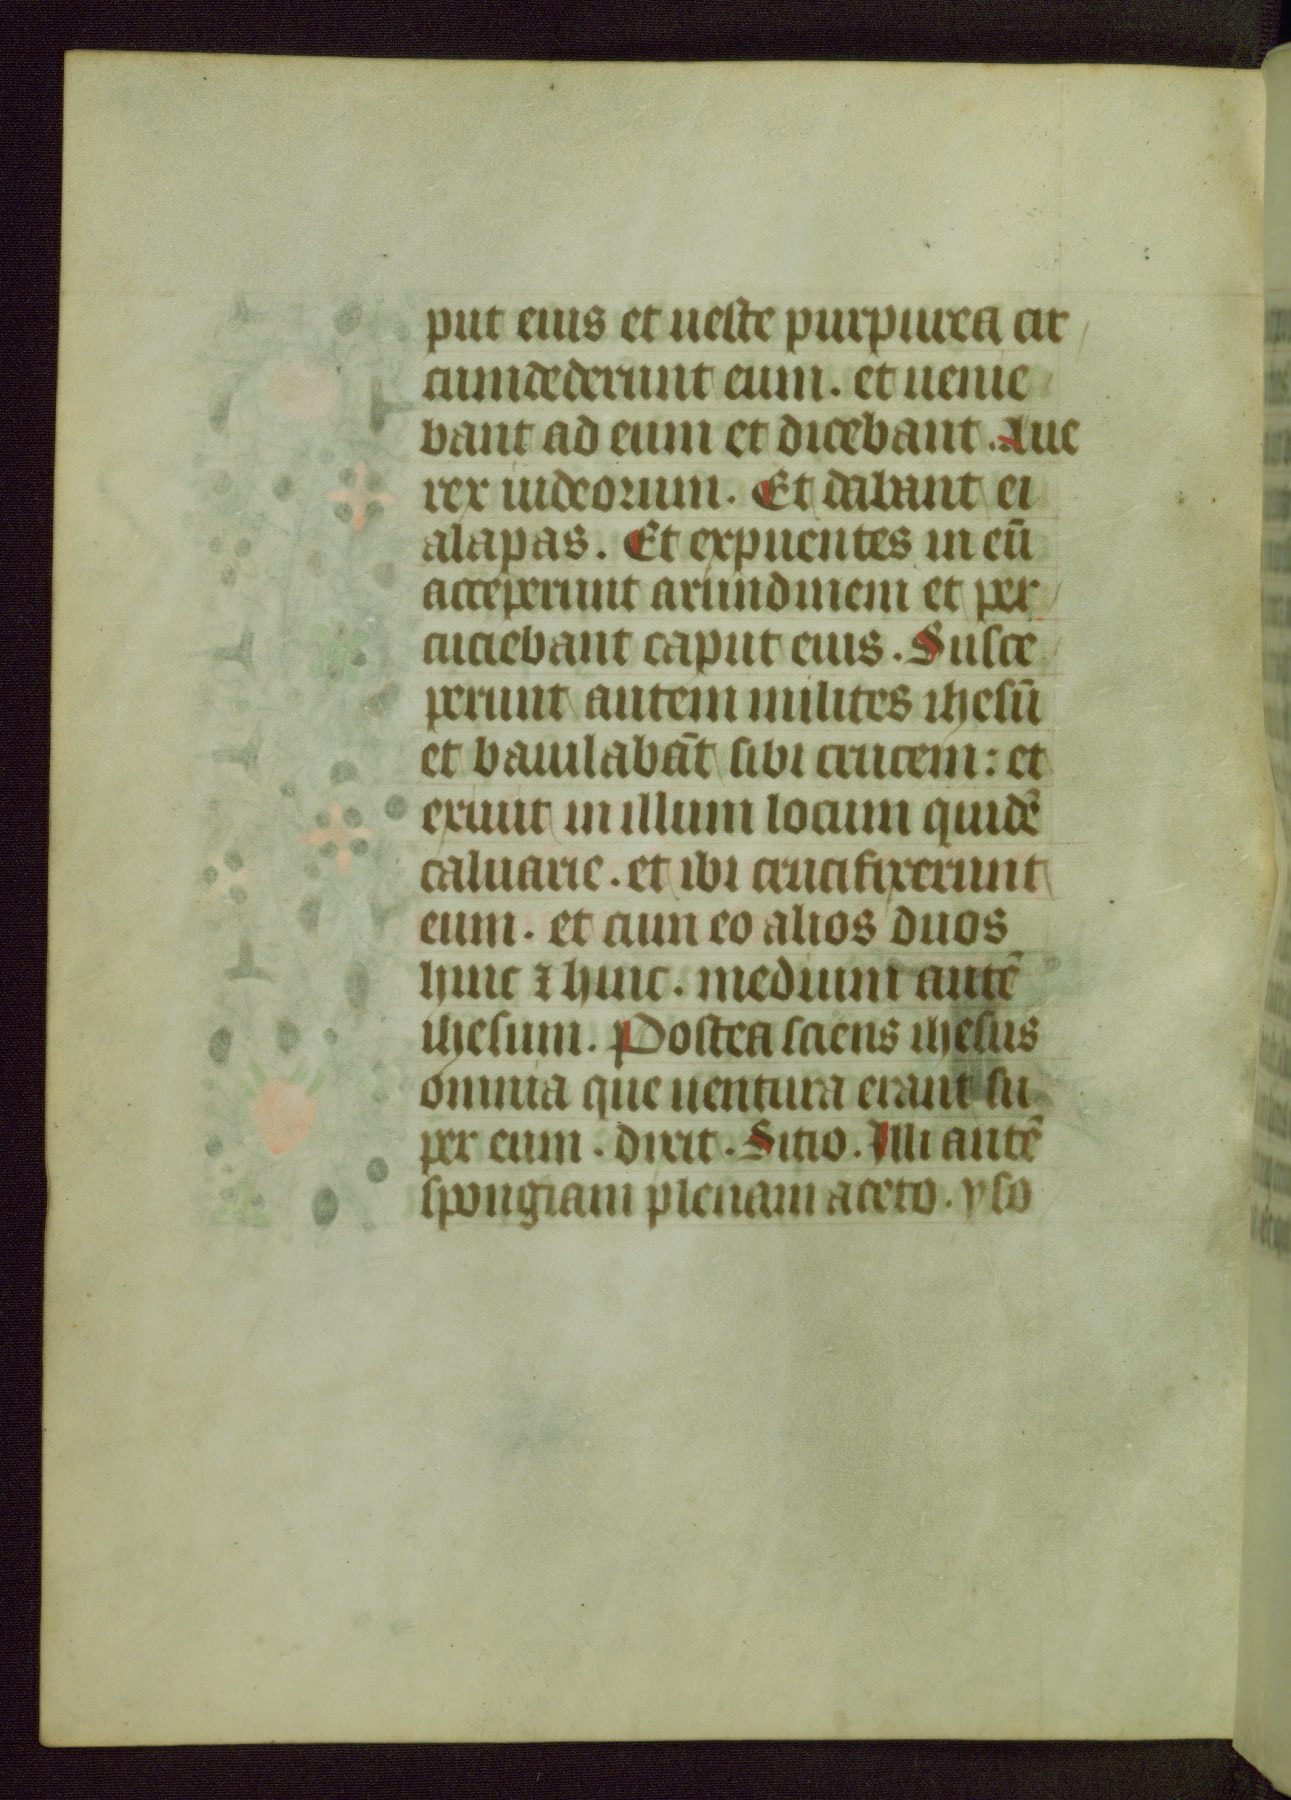 put eius et ueste purpurea cir
cumdederunt eum. et uenie
bant ad eum et dicebant. Aue
rex iudeorum. Et dabant ei
alapas. Et expuentes in eū
acceperunt arundinem et per
cuciebant caput eius. Susce
perunt autem milites ihesū
et bauilabāt sibi crucem: et
exiuit in illum locum quidē
caluarie. et ibi crucifixerunt
eum. et cum eo alios duos
hinc ⁊ hinc. medium autē
ihesum. Postea sciens ihesus
omnia que uentura erant su
per eum. dixit. Sitio. Illi autē
spongiam plenam aceto. yso